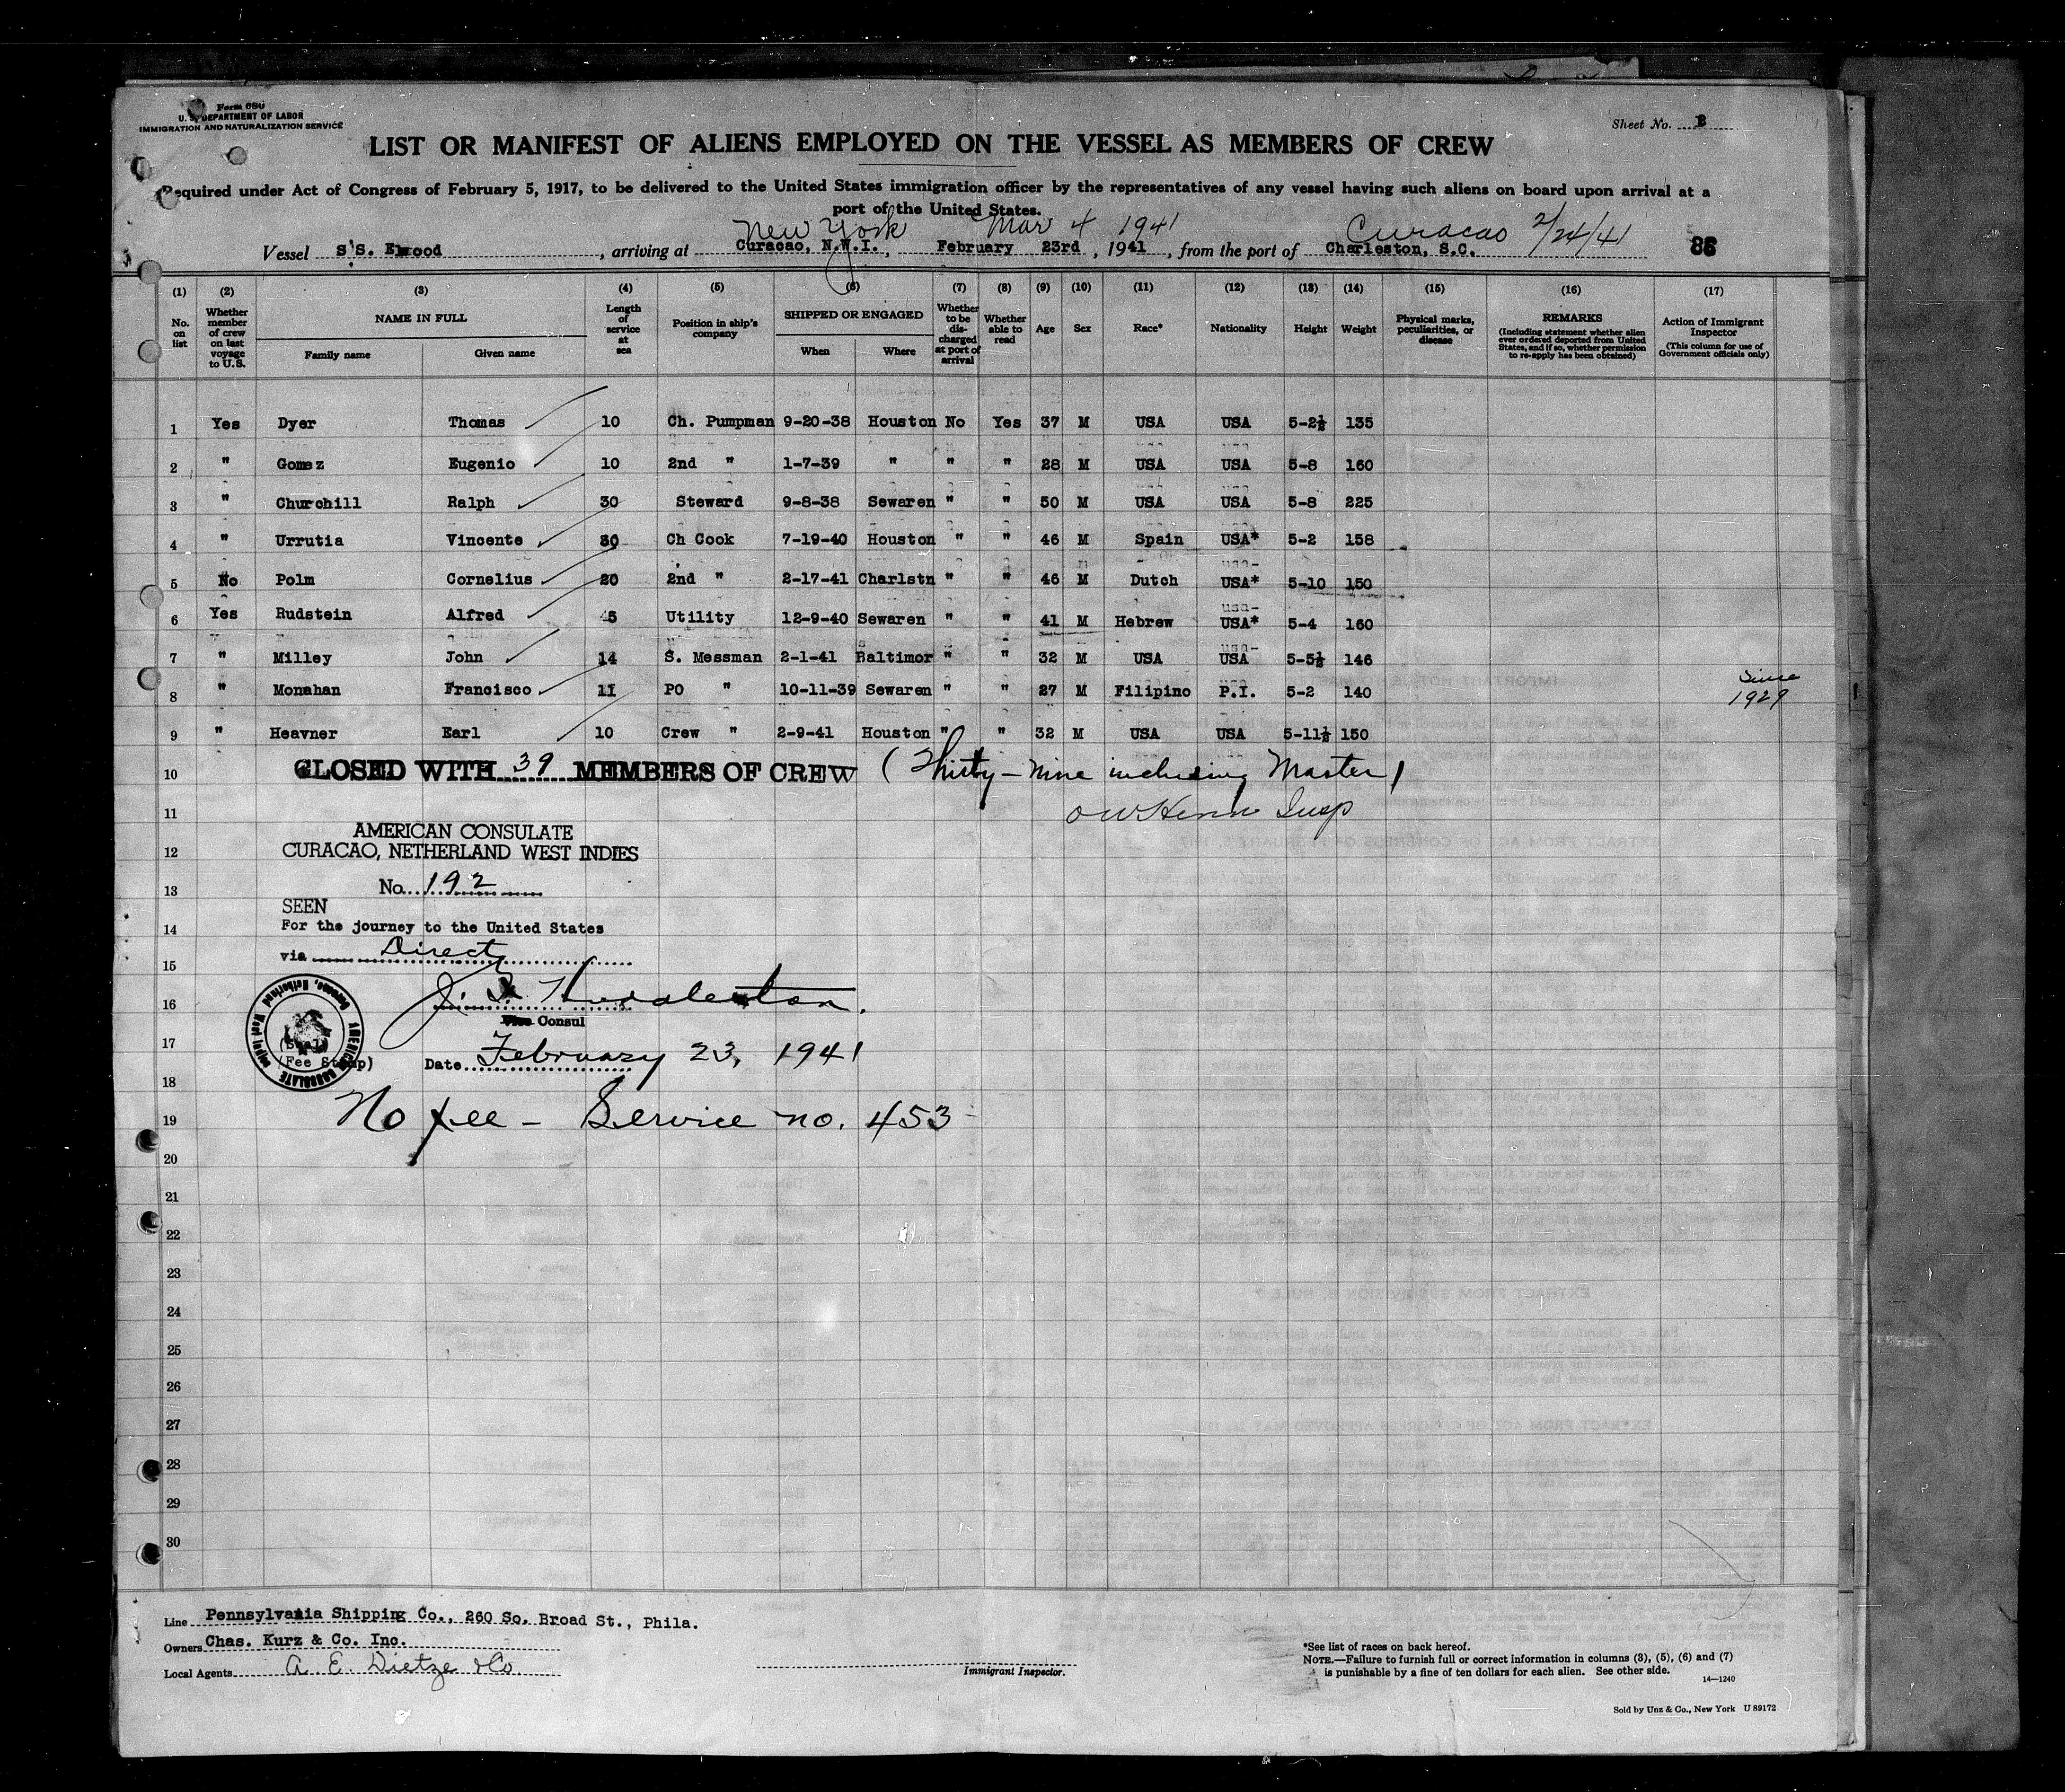 Form 680
U. S. DEPARTMENT OF LABOR
IMMIGRATION AND NATURALIZATION SERVICE
Sheet No.
LIST OR MANIFEST OF ALIENS EMPLOYED ON THE VESSEL AS MEMBERS OF CREW
Required under Act of Congress of February 5, 1917, to be delivered to the United States immigration officer by the representatives of any vessel having such aliens on board upon arrival at a
port of the United States.
New York Mar 4 1941 Curacao 2/24/41
Vessel S'S. Elwood, arriving at Curacao, N.W.I., February 23rd, 1941, from the port of Charleston, S.C. 86
(1) (2) (3) (4) (5) (6) (7) (8) (9) (10) (11) (12) (13) (14) (15) (16) (17)
No. on list
Whether member of crew on last voyage to U.S.
NAME IN FULL
Family name Given name
Length of service at sea
Position in ship's company
SHIPPED OR ENGAGED
When Where
Whether to be discharged at port of arrival
Whether able to read
Age Sex Race* Nationality Height Weight
Physical marks, peculiarities, or disease
REMARKS
(Including statement whether alien ever ordered deported from United States, and if so, whether permission to re-apply has been obtained)
Action of Immigrant Inspector
(This column for use of Government officials only)
1 Yes Dyer Thomas 10 Ch. Pumpman 9-20-38 Houston No Yes 37 M USA USA 5-2½ 135
2 " Gomez Eugenio 10 2nd " 1-7-39 " " " 28 M USA USA 5-8 160
3 " Churchill Ralph 30 Steward 9-8-38 Sewaren " " 50 M USA USA 5-8 225
4 " Urrutia Vincente 30 Ch Cook 7-19-40 Houston " " 46 M Spain USA* 5-2 158
5 No Polm Cornelius 20 2nd " 2-17-41 Charlstn " " 46 M Dutch USA* 5-10 150
6 Yes Rudstein Alfred 5 Utility 12-9-40 Sewaren " " 41 M Hebrew USA* 5-4 160
7 " Milley John 14 S. Messman 2-1-41 Baltimor " " 32 M USA USA 5-5½ 146
8 " Monahan Francisco 11 PO " 10-11-39 Sewaren " " 27 M Filipino P.I. 5-2 140 Since 1929
9 " Heavner Earl 10 Crew " 2-9-41 Houston " " 32 M USA USA 5-11½ 150
10 CLOSED WITH 39 MEMBERS OF CREW (Thirty-Nine including Master)
11 Insp
AMERICAN CONSULATE
12 CURACAO, NETHERLAND WEST INDIES
13 No. 192
SEEN
14 For the journey to the United States
via Direct
15
16
Vice Consul
17 (Seal)
(Fee Stamp) Date February 23, 1941
AMERICAN CONSULATE Curacao, Netherland West Indies
18
19 No fee - Service no. 453
20
21
22
23
24
25
26
27
28
29
30
Line Pennsylvania Shipping Co., 260 So. Broad St., Phila.
Owners Chas. Kurz & Co. Inc.
Local Agents A. E. Dietze & Co.
Immigrant Inspector.
*See list of races on back hereof.
NOTE.—Failure to furnish full or correct information in columns (3), (5), (6) and (7)
is punishable by a fine of ten dollars for each alien. See other side.
14—1240
Sold by Unz & Co., New York U 89172